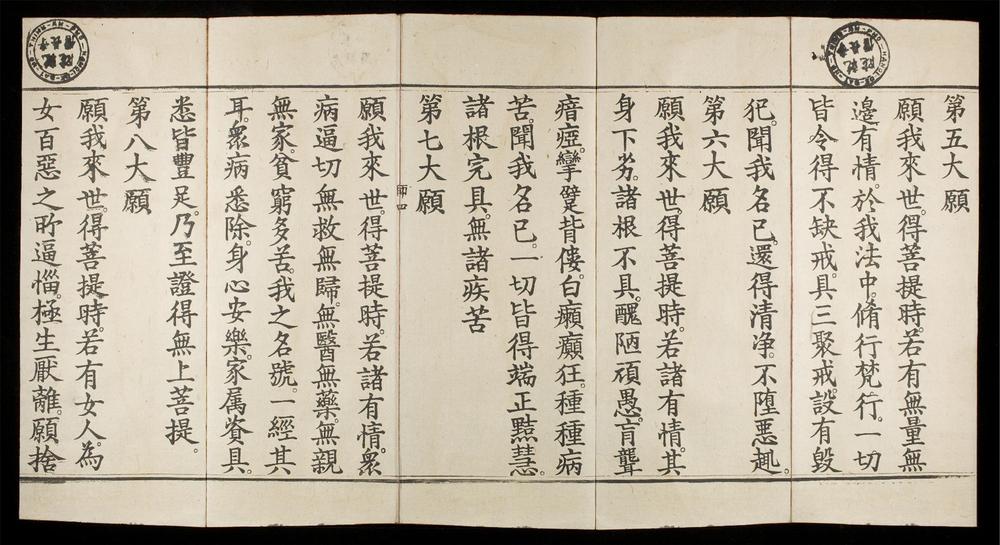 第五大願
願我來世。得菩提時。若有無量無
邊有情。於我法中。脩行梵行。一切
皆令得不缺戒。具三聚戒。設有毀
犯。聞我名已。還得清淨。不墮惡趣。
第六大願
願我來世。得菩提時。若諸有情。其
身下劣。諸根不具。醜陋頑愚。盲聾
瘖瘂。攣躄背僂。白癩癲狂。種種病
苦。聞我名已。一切皆得端正黠慧。
諸根完具。無諸疾苦
第七大願
師四
願我來世。得菩提時。若諸有情。衆
病逼切無救無歸。無醫無藥。無親
無家。貧窮多苦。我之名號。一經其
耳。衆病悉除。身心安樂。家属資具。
悉皆豐足。乃至證得無上菩提。
第八大願
願我來世。得菩提時。若有女人。為
女百惡之所逼惱。極生厭離。願捨